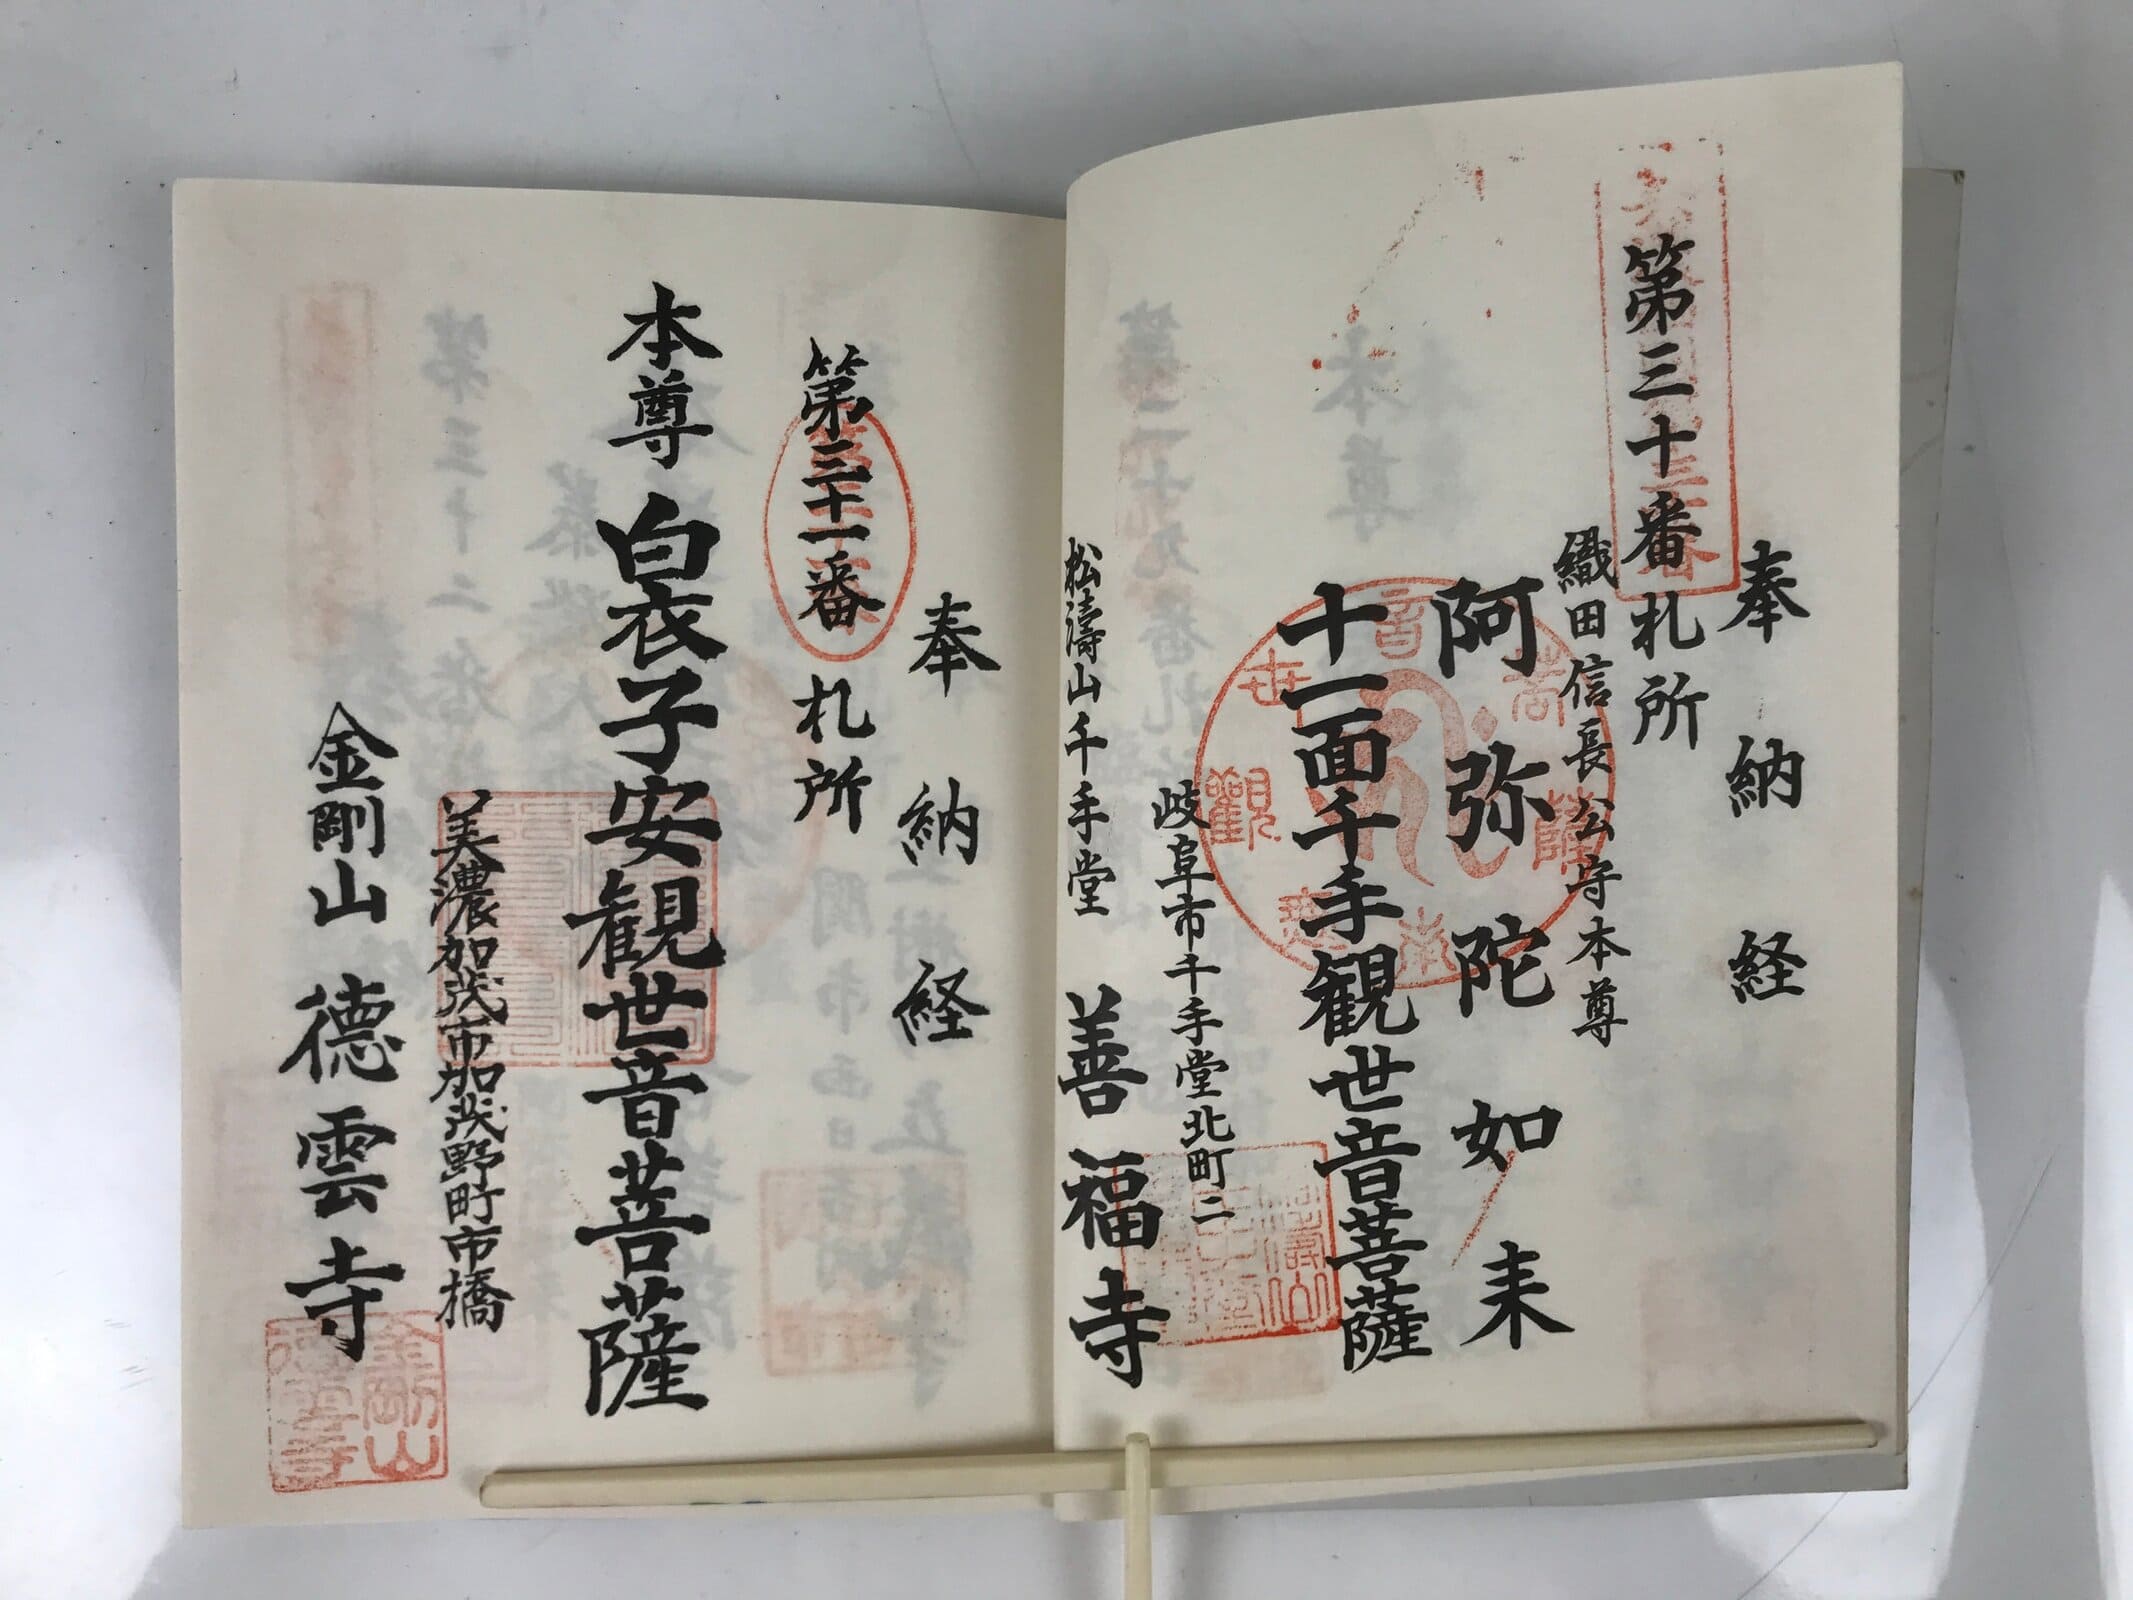 奉納経
第三十番札所
織田信長公守本尊
阿弥陀如来
十一面千手観世音菩薩
岐阜市千手堂北町二
松濤山千手堂 善福寺
奉納経
第三十一番札所
本尊 白衣子安観世音菩薩
美濃加茂市加茂野町市橋
金剛山 徳雲寺
金剛山
徳雲寺